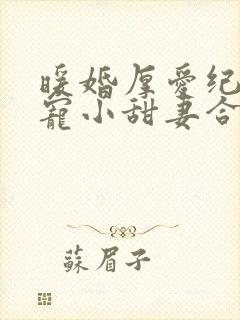 暖婚厚愛纪
寵小甜妻合
蘇眉子